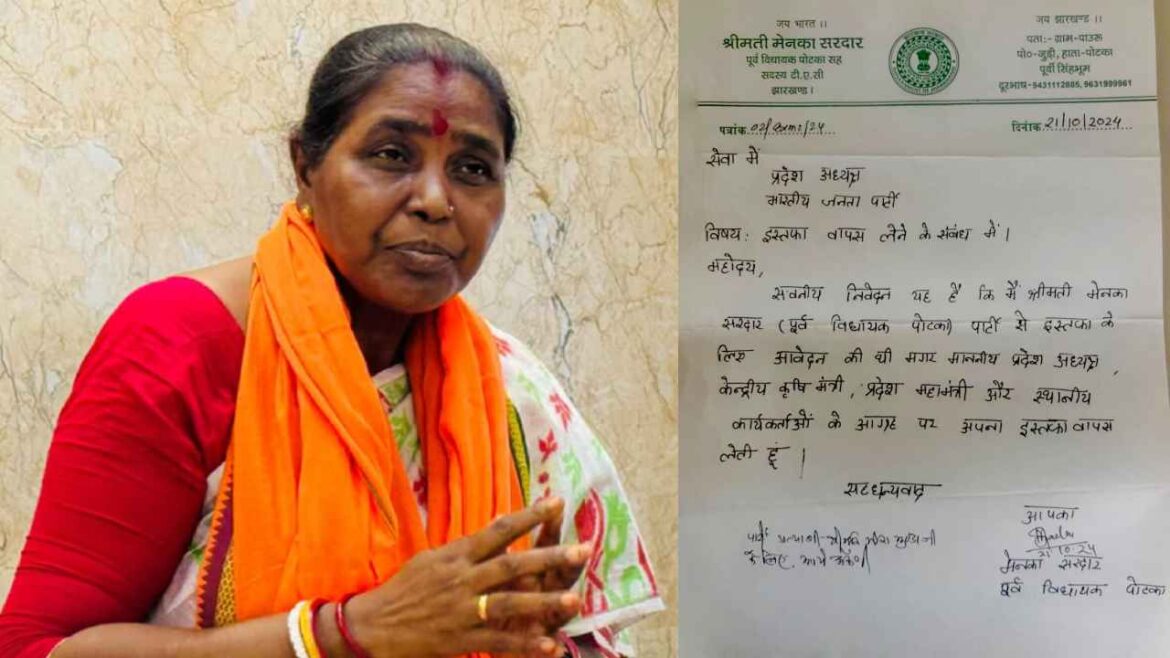 जय भारत ।।
श्रीमती मेनका सरदार
पूर्व विधायक पोटका सह
सदस्य टी.ए.सी
झारखण्ड।
जय झारखण्ड ।।
पता:- ग्राम-पाउरू
पो०-जुड़ी, हाता-पोटका
पूर्वी सिंहभूम
दूरभाष-9431112885, 9631999961
पत्रांक 02/ /24
दिनांक 21/10/2024
सेवा में
प्रदेश अध्यक्ष
भारतीय जनता पार्टी
विषय: इस्तफा वापस लेने के संबंध में।
महोदय,
सवनीय निवेदन यह है कि मैं श्रीमती मेनका
सरदार (पूर्व विधायक पोटका) पार्टी से इस्तफा के
लिए आवेदन की थी मगर माननीय प्रदेश अध्यक्ष,
केन्द्रीय कृषि मंत्री, प्रदेश महामंत्री और स्थानीय
कार्यकर्ताओं के आग्रह पर अपना इस्तफा वापस
लेती हूं।
सटधन्यवाद
आपका
21.10.24
मेनका सरदार
पूर्व विधायक पोटका
पार्टी
के लिए,